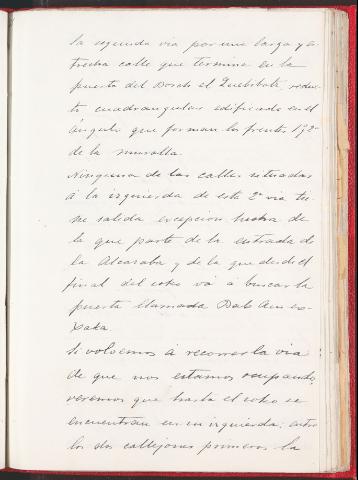 la segunda via por una larga y es-
trecha calle que termina en la
puerta del Borch el Quebibat, reduc-
to cuadrangular edificado en el
ángulo que forman los frentes 1º y 2º
de la muralla.
Ninguna de las calles situadas
á la izquierda de esta 2ª via tie-
ne salida excepcion hecha de
la que parte de la entrada de
la Alcazaba y de la que desde el
final del zoko vá á buscar la
puerta llamada Bab
Si volvemos á recorrer la via
de que nos estamos ocupando,
veremos que hasta el zoko se
encuentran en su izquierda: entre
los dos callejones primeros la